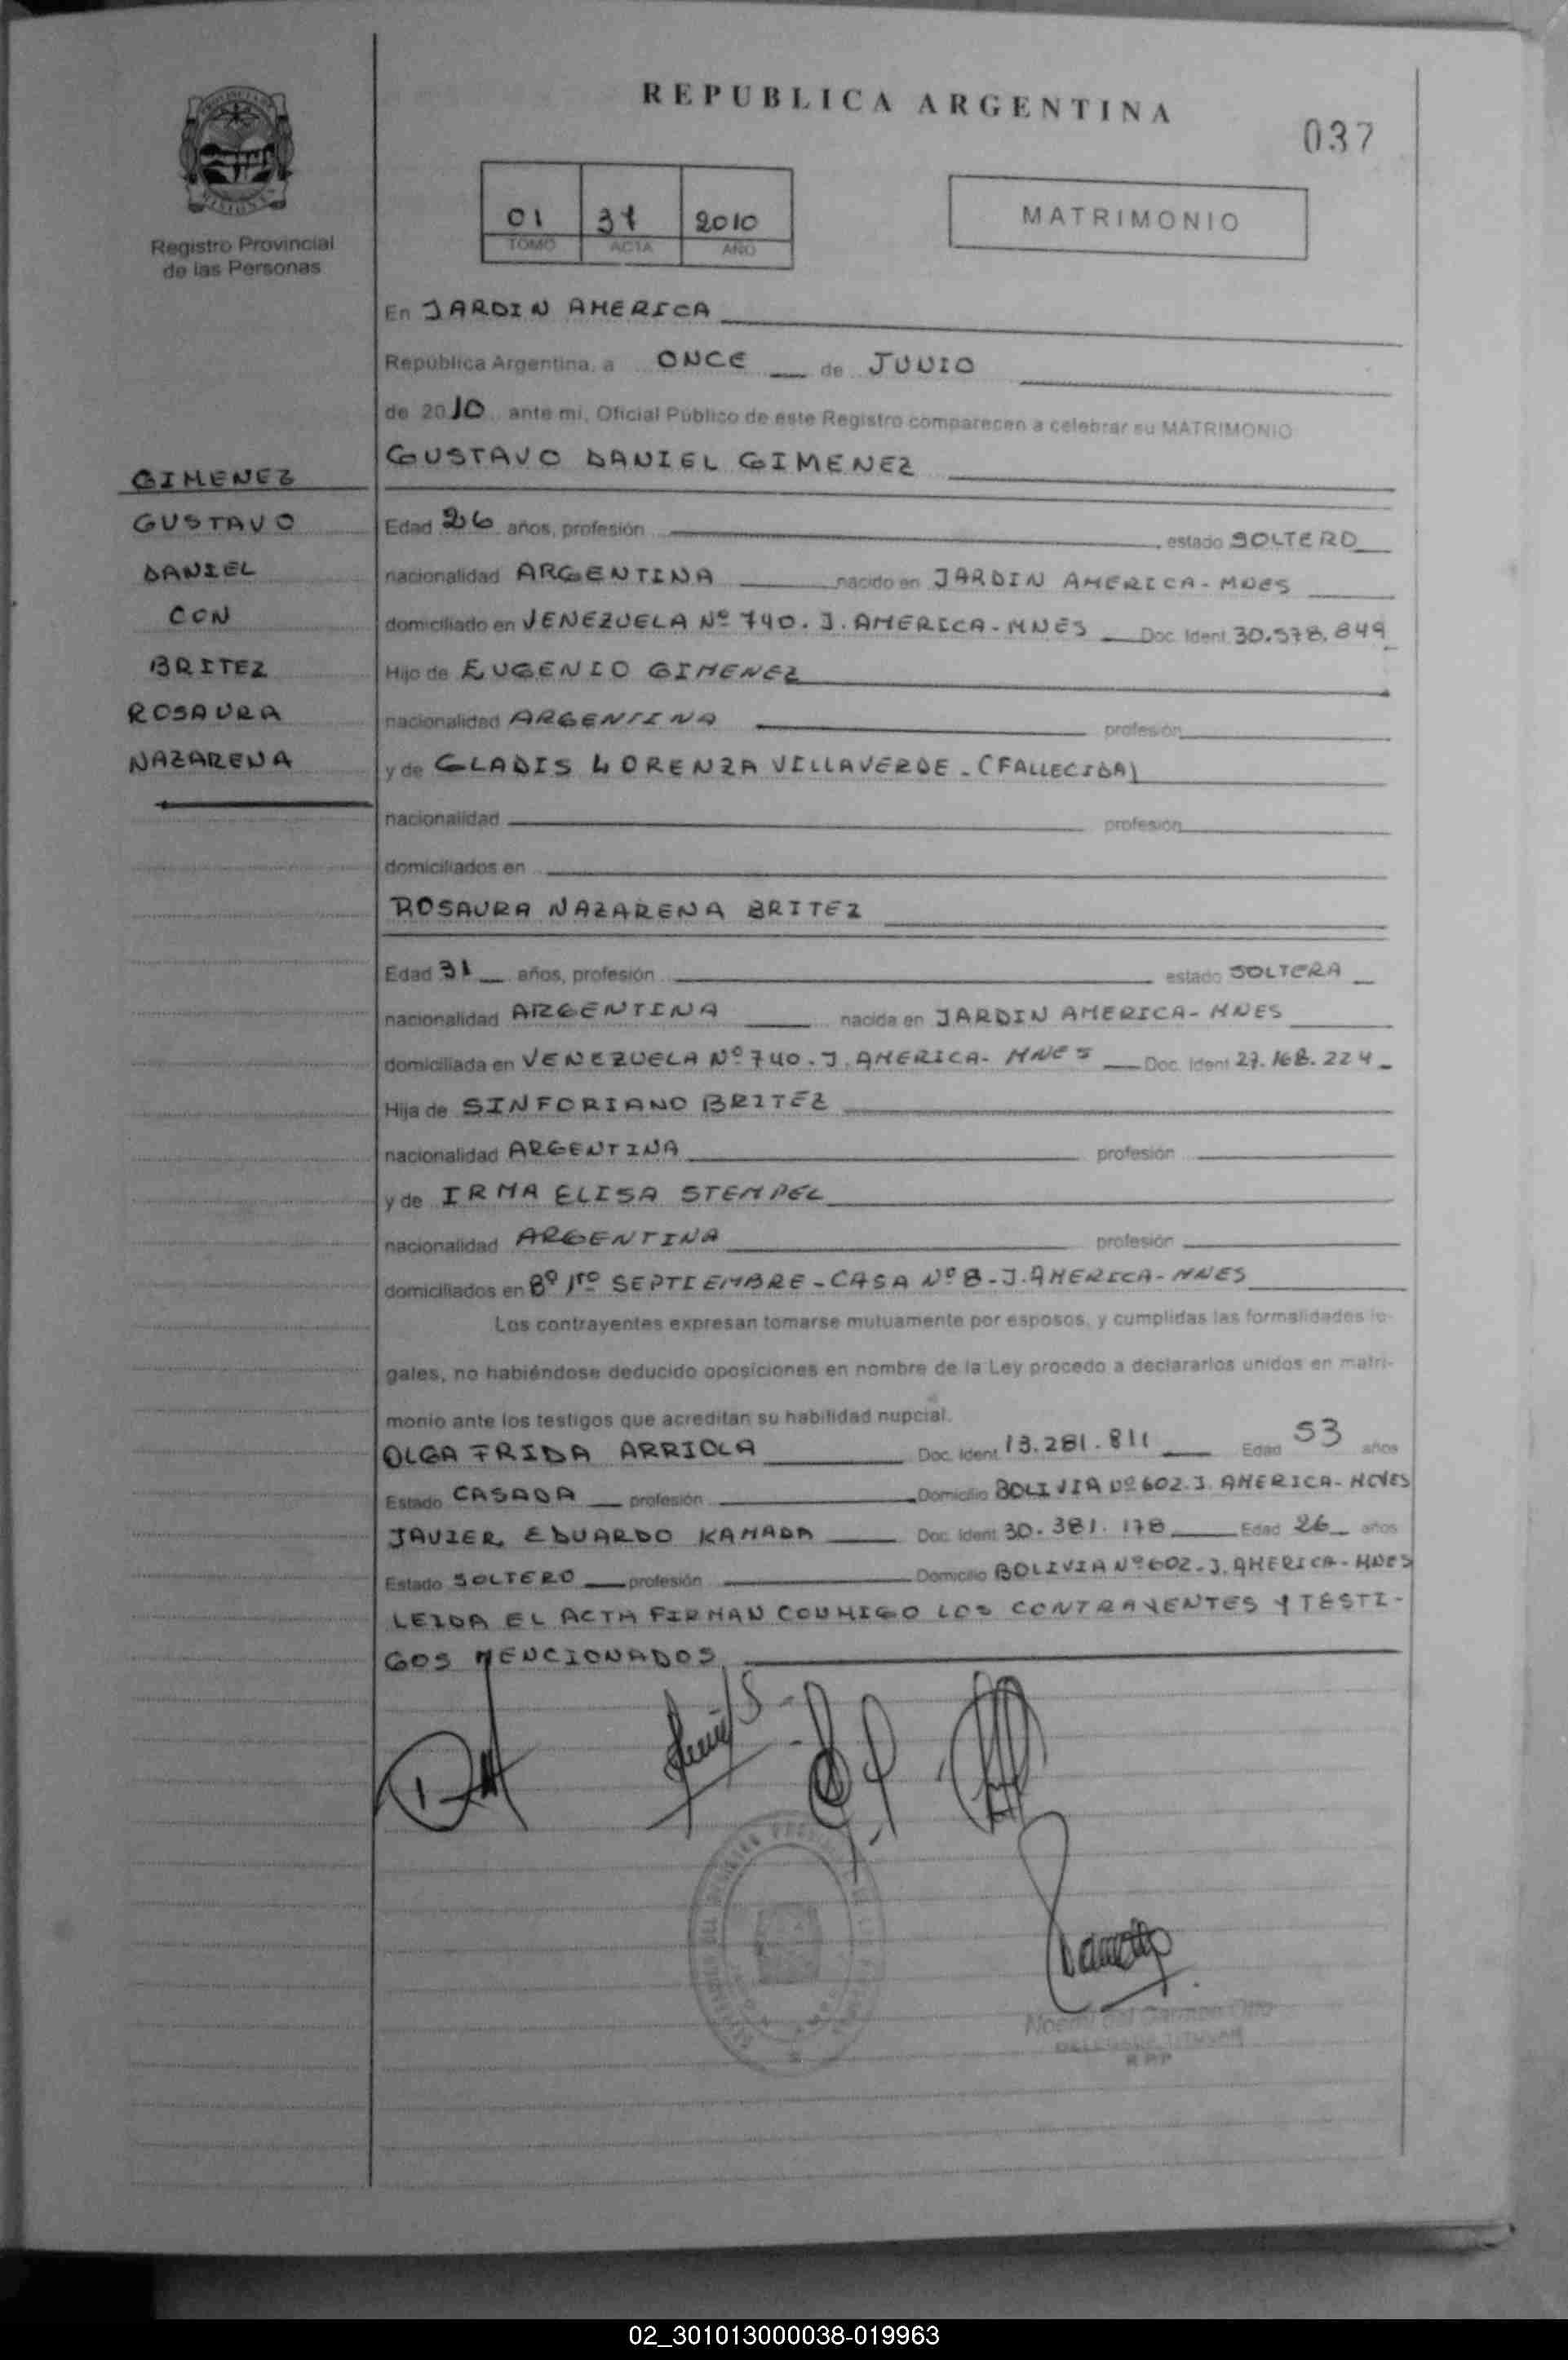 REPUBLICA ARGENTINA
037
Registro Provincial
de las Personas
01 37 2010
TOMO ACTA AÑO
MATRIMONIO
En JARDIN AMERICA
República Argentina, a ONCE de JUNIO
de 2010 ante mi, Oficial Público de este Registro comparecen a celebrar su MATRIMONIO
GUSTAVO DANIEL GIMENEZ
GIMENEZ
GUSTAVO
DANIEL
CON
BRITEZ
ROSAURA
NAZARENA
Edad 26 años, profesión estado SOLTERO
nacionalidad ARGENTINA nacido en JARDIN AMERICA-MNES
domiciliado en VENEZUELA Nº 740. J. AMERICA-MNES Doc. Ident. 30.578.849
Hijo de EUGENIO GIMENEZ
nacionalidad ARGENTINA profesión
y de GLADIS LORENZA VILLAVERDE-(FALLECIDA)
nacionalidad profesión
domiciliados en
ROSAURA NAZARENA BRITEZ
Edad 31 años, profesión estado SOLTERA
nacionalidad ARGENTINA nacida en JARDIN AMERICA-MNES
domiciliada en VENEZUELA Nº 740. J. AMERICA-MNES Doc. Ident. 27.168.224
Hija de SINFORIANO BRITEZ
nacionalidad ARGENTINA profesión
y de IRMA ELISA STEMPEL
nacionalidad ARGENTINA profesión
domiciliados en Bº 1ro SEPTIEMBRE-CASA Nº 8-J. AMERICA-MNES
Los contrayentes expresan tomarse mutuamente por esposos, y cumplidas las formalidades le-
gales, no habiéndose deducido oposiciones en nombre de la Ley procedo a declararlos unidos en matri-
monio ante los testigos que acreditan su habilidad nupcial.
OLGA FRIDA ARRIOLA Doc. Ident. 13.281.811 Edad 53 años
Estado CASADA profesión Domicilio BOLIVIA Nº 602. J. AMERICA-MNES
JAVIER EDUARDO KAMADA Doc. Ident. 30.381.178 Edad 26 años
Estado SOLTERO profesión Domicilio BOLIVIA Nº 602. J. AMERICA-MNES
LEIDA EL ACTA FIRMAN CONMIGO LOS CONTRAYENTES Y TESTI-
GOS MENCIONADOS
DELEGADA TITULAR
02_301013000038-019963